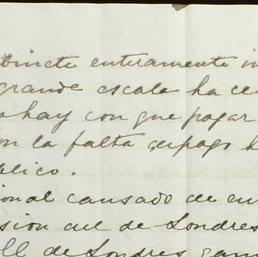 binete enteramente in
grande escala ha ce
o hay con que pagar
on la falta de pago h
blico.
ional causado de en
sion del de Londres
ll de Londres gan